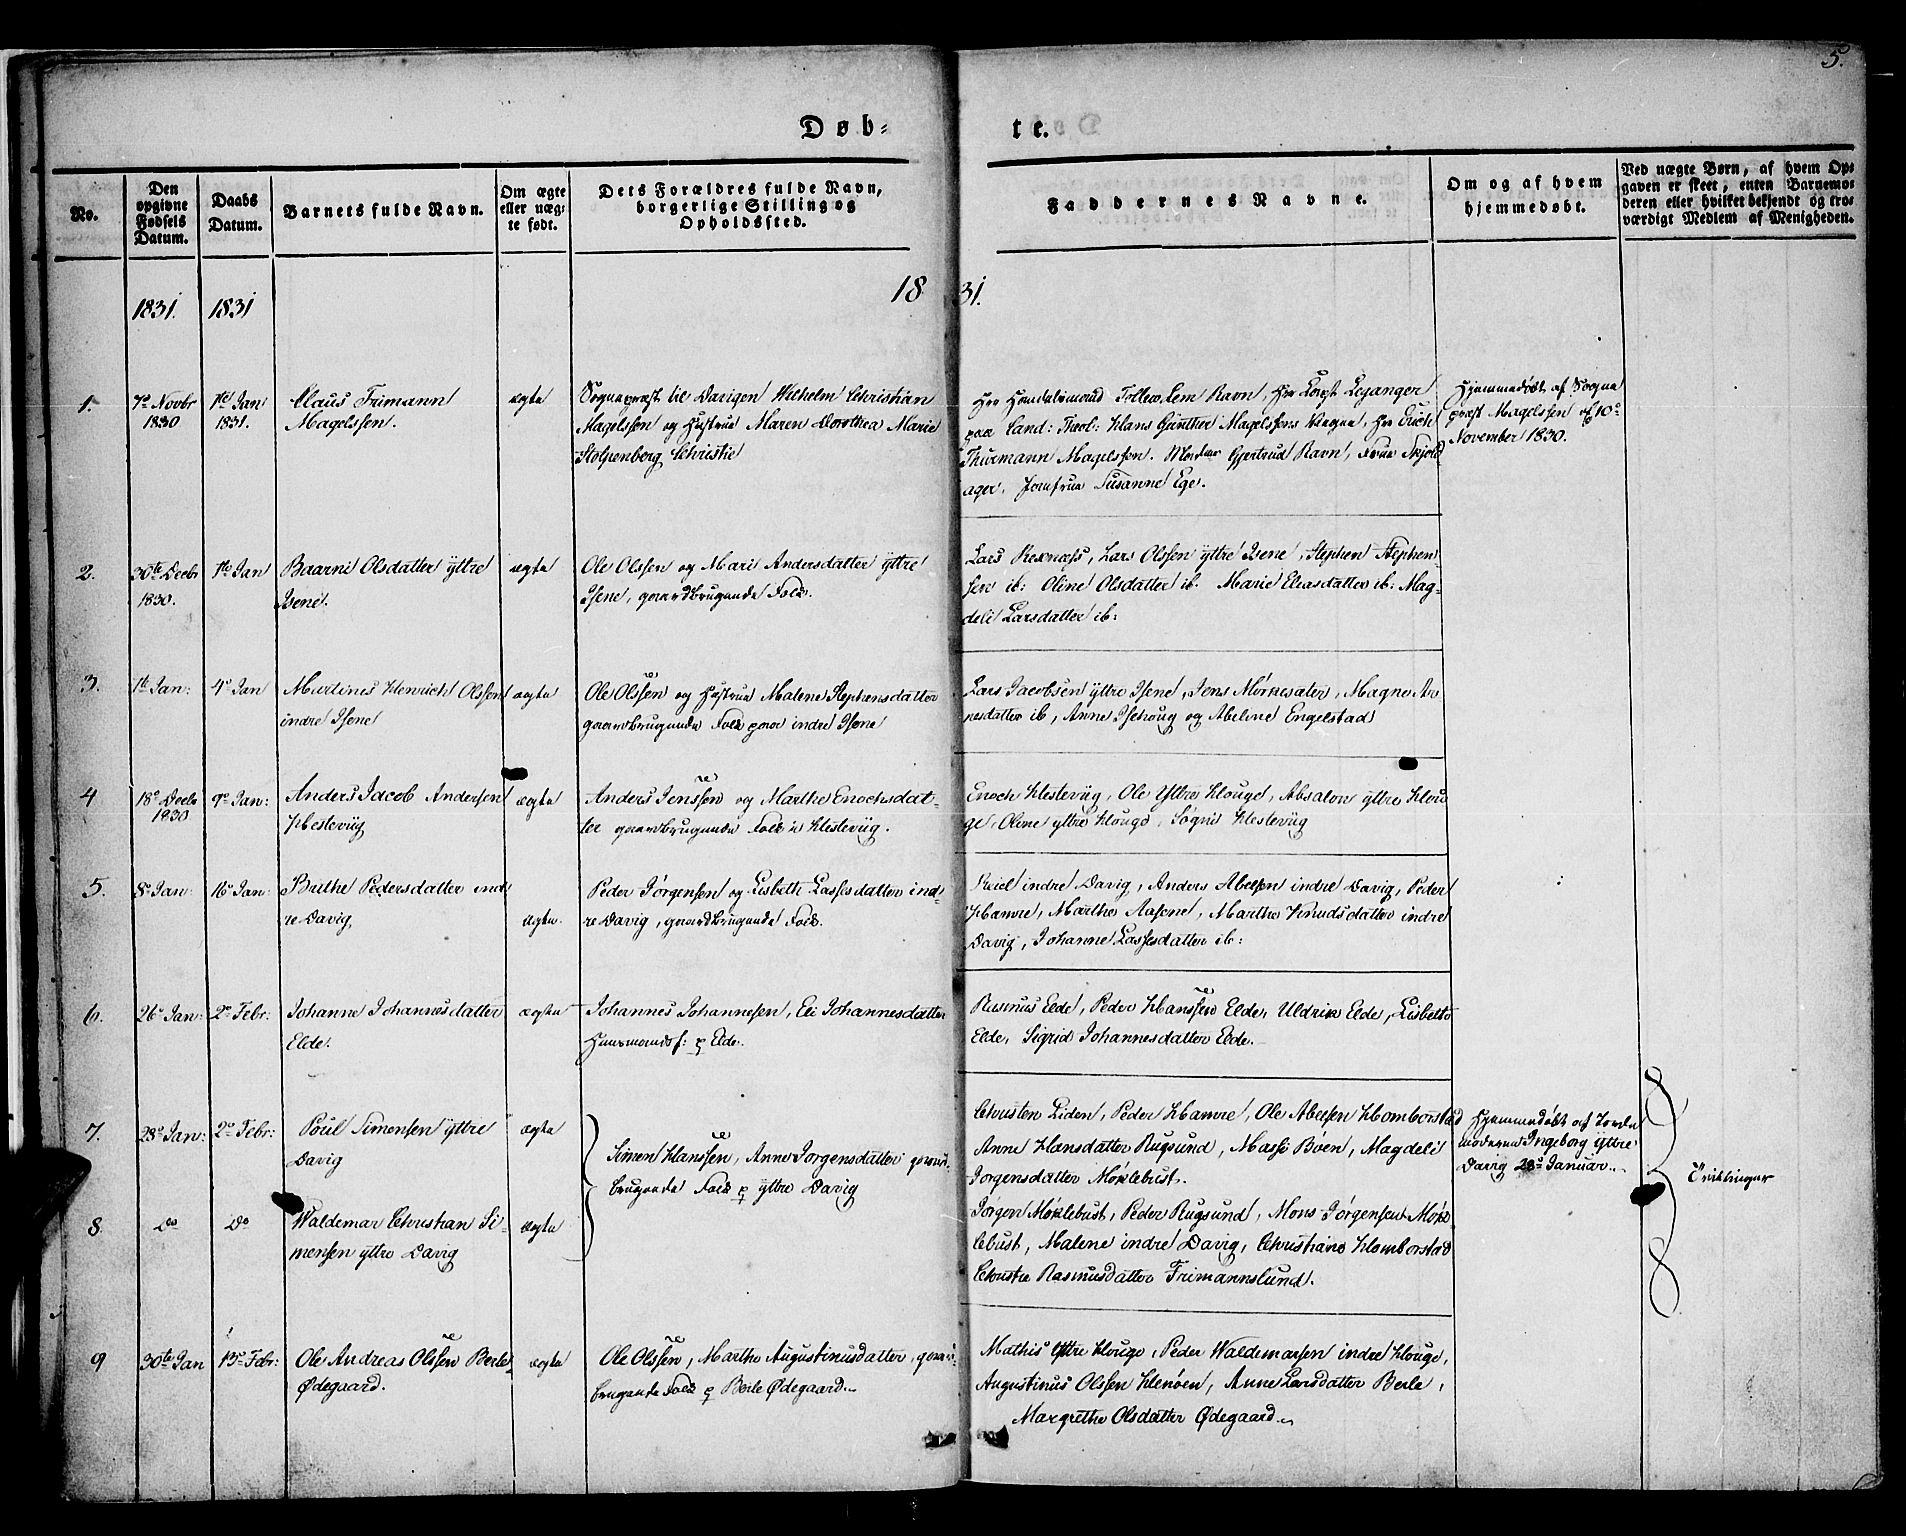 5.
Døb-
te.
No.
Den
opgivne
Fødsels
Datum.
Daabs
Datum.
Barnets fulde Navn.
Om ægte
eller uæg-
te født.
Dets Forældres fulde Navn,
borgerlige Stilling og
Opholdssted.
Faddernes Navne.
Om og af hvem
hjemmedøbt.
Ved uægte Børn, af hvem Op-
gaven er skeet, enten Barnemo-
deren eller hvilket bekjendt og tro-
værdigt Medlem af Menigheden.
1831.
1831
18
31.
1.
7de Novbr
1830
1ste Jan
1831.
Claus Frimann
Magelssen.
ægte
Sognepræst til Davigen Wilhelm Christian
Magelssen og Hustrue Maren Dorothea Marie
Stolpenberg Christie
Hr. Ravn, Hr. Leganger
Cand: Theol: Hans Günther Magelssen, Hr Erich
Thurmann Magelssen. Gjertrud Ravn, Frue Skjold
ager, Jomfrue Susanne Ege.
Hjemmedøbt af Sogne
præst Magelssen 10de
November 1830.
2.
30te Decbr
1830.
1ste Jan
Baarni Olsdatter yttre
Isene.
ægte
Ole Olssen og Mari Andersdatter yttre
Isene, gaardbrugende Folk.
Lars Rexnæss, Lars Olssen yttre Isene, Stephen Stephen-
sen ib: Oline Olsdatter ib. Marie Eliasdatter ib: Mag-
deli Larsdatter ib:
3.
1ste Jan:
4de Jan
Martines Henrich Olssen
indre Isene
ægte
Ole Olssen og Hustrue Malene Stephensdatter
gaardbrugende Folk paa indre Isene
Lars Jacobsen yttre Isene, Jens Mørkesæter, Magne Ar
nesdatter ib, Anne Isehoug og Abeline Engelstad
4
18de Decbr
1830
9de Jan:
Anders Jacob Andersen
Hestevüg
ægte
Anders Jenssen og Marthe Enochsdat-
ter gaardbrugende Folk i Hestevüg.
Enoch Hestevüg, Ole Yttre Hougé, Absalon yttre Hou
ge, Oline yttre Houge, Søgni Hestevüg
5.
8de Jan:
16de Jan:
Brithe Pedersdatter ind
re Davig
ægte.
Peder Jørgensen og Lisbeth Lassesdatter ind-
re Davig, gaardbrugende Folk.
indre Davig, Anders Abelsen indre Davig, Peder
Hamre, Marthe Aasene, Marthe Knudsdatter indre
Davig, Johanne Lassesdatter ib:
6.
26de Jan:
2den Febr:
Johanne Johannesdatter
Elde.
ægte
Johannes Johannesen, Eli Johannesdatter
Huusmandsf: p Elde.
Rasmus Elde, Peder Hanssen Elde, Uldrik Elde, Lisbeth
Elde, Sigrid Johannesdatter Elde.
7.
28de Jan:
2den Febr:
Poul Simensen yttre
Davig
ægte
Simen Hanssen, Anne Jorgensdatter gaard-
brugende Folk p yttre Davig
Christen Liden, Peder Hamre, Ole Abelsen Hombørstad
Anne Hansdatter Rugsund, Massi Bøen, Magdeli
Jorgensdatter Møklebust.
Hjemmedøbt af Jorde
moderen Ingeborg yttre
Davig 28de Januar.
Tvillinger
8.
Do
Do
Waldemar Christian Si-
mensen yttre Davig
ægte
Jørgen Møklebust, Peder Rugsund, Mons Jørgensen Møk
lebust, Malene indre Davig, Christiane Homborstad
Christie Rasmusdatter Frimannslund.
9
30te Jan
13de Febr:
Ole Andreas Olssen Berle
Ødegaard.
ægte
Ole Olssen, Marthe Augustinusdatter, gaard-
brugende Folk p Berle Ødegaard.
Mathis Yttre Houge, Peder Waldemarsen indre Houge,
Augustinus Olssen Henøen, Anne Larsdatter Berle,
Margrethe Olsdatter Ødegaard.